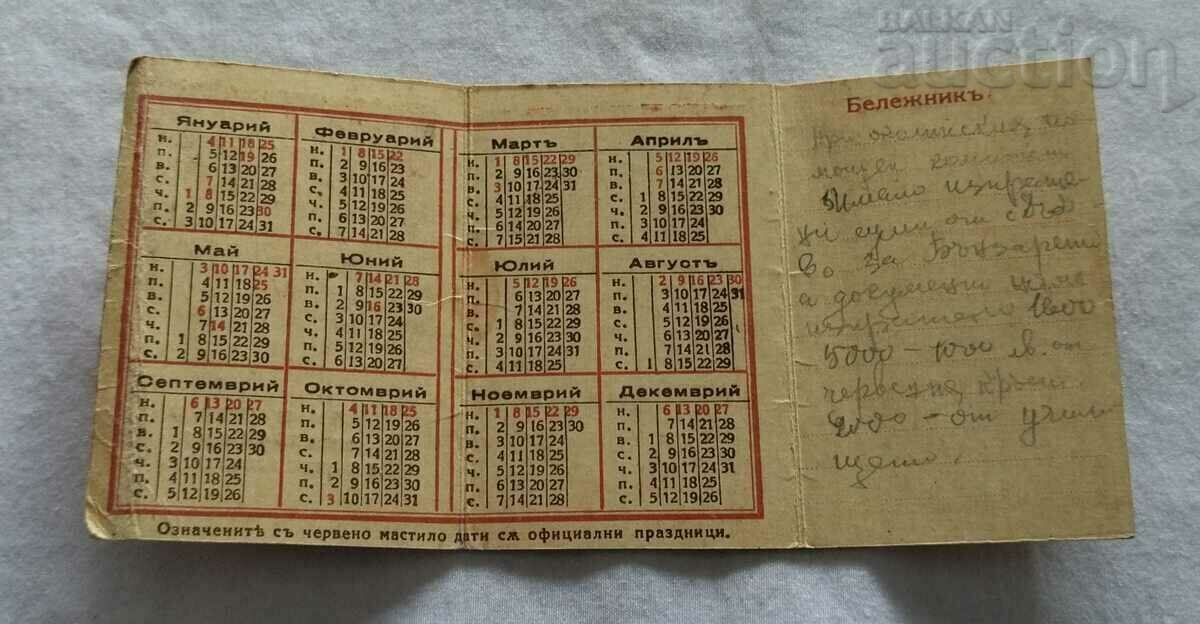 BALKAN
auction
Януарий
н. 4 11 18 25
п. 5 12 19 26
в. 6 13 20 27
с. 7 14 21 28
ч. 1 8 15 22 29
п. 2 9 16 23 30
с. 3 10 17 24 31
Февруарий
н. 1 8 15 22
п. 2 9 16 23
в. 3 10 17 24
с. 4 11 18 25
ч. 5 12 19 26
п. 6 13 20 27
с. 7 14 21 28
Мартъ
н. 1 8 15 22 29
п. 2 9 16 23 30
в. 3 10 17 24 31
с. 4 11 18 25
ч. 5 12 19 26
п. 6 13 20 27
с. 7 14 21 28
Априлъ
н. 5 12 19 26
п. 6 13 20 27
в. 7 14 21 28
с. 1 8 15 22 29
ч. 2 9 16 23 30
п. 3 10 17 24
с. 4 11 18 25
Май
н. 3 10 17 24 31
п. 4 11 18 25
в. 5 12 19 26
с. 6 13 20 27
ч. 7 14 21 28
п. 1 8 15 22 29
с. 2 9 16 23 30
Юний
н. 7 14 21 28
п. 1 8 15 22 29
в. 2 9 16 23 30
с. 3 10 17 24
ч. 4 11 18 25
п. 5 12 19 26
с. 6 13 20 27
Юлий
н. 5 12 19 26
п. 6 13 20 27
в. 7 14 21 28
с. 1 8 15 22 29
ч. 2 9 16 23 30
п. 3 10 17 24 31
с. 4 11 18 25
Августъ
н. 2 9 16 23 30
п. 3 10 17 24 31
в. 4 11 18 25
с. 5 12 19 26
ч. 6 13 20 27
п. 7 14 21 28
с. 1 8 15 22 29
Септемврий
н. 6 13 20 27
п. 7 14 21 28
в. 1 8 15 22 29
с. 2 9 16 23 30
ч. 3 10 17 24
п. 4 11 18 25
с. 5 12 19 26
Октомврий
н. 4 11 18 25
п. 5 12 19 26
в. 6 13 20 27
с. 7 14 21 28
ч. 1 8 15 22 29
п. 2 9 16 23 30
с. 3 10 17 24 31
Ноемврий
н. 1 8 15 22 29
п. 2 9 16 23 30
в. 3 10 17 24
с. 4 11 18 25
ч. 5 12 19 26
п. 6 13 20 27
с. 7 14 21 28
Декемврий
н. 6 13 20 27
п. 7 14 21 28
в. 1 8 15 22 29
с. 2 9 16 23 30
ч. 3 10 17 24 31
п. 4 11 18 25
с. 5 12 19 26
Означенитѣ съ червено мастило дати сѫ официални праздници.
Бележникъ
имало
ни суми от
во за
а документи
1800
5000 - 1000 лв. от
2000 - от учили
щето.